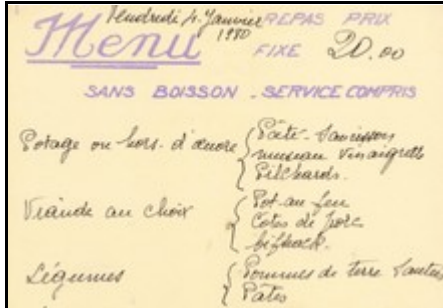 Vendredi 4 Janvier 1980
Menu
REPAS PRIX
FIXE 20.00
SANS BOISSON - SERVICE COMPRIS
Potage ou hors. d'œuvre { Pâté - Saucisson
museau vinaigrette
Pilchards.
Viande au choix { Pot au feu
Cotes de porc
bifteack.
Légumes { Pommes de terre Sautées
Pâtes